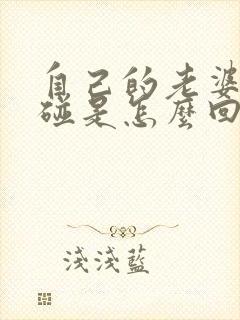 自己的老婆
碰是怎麼回
淺淺藍